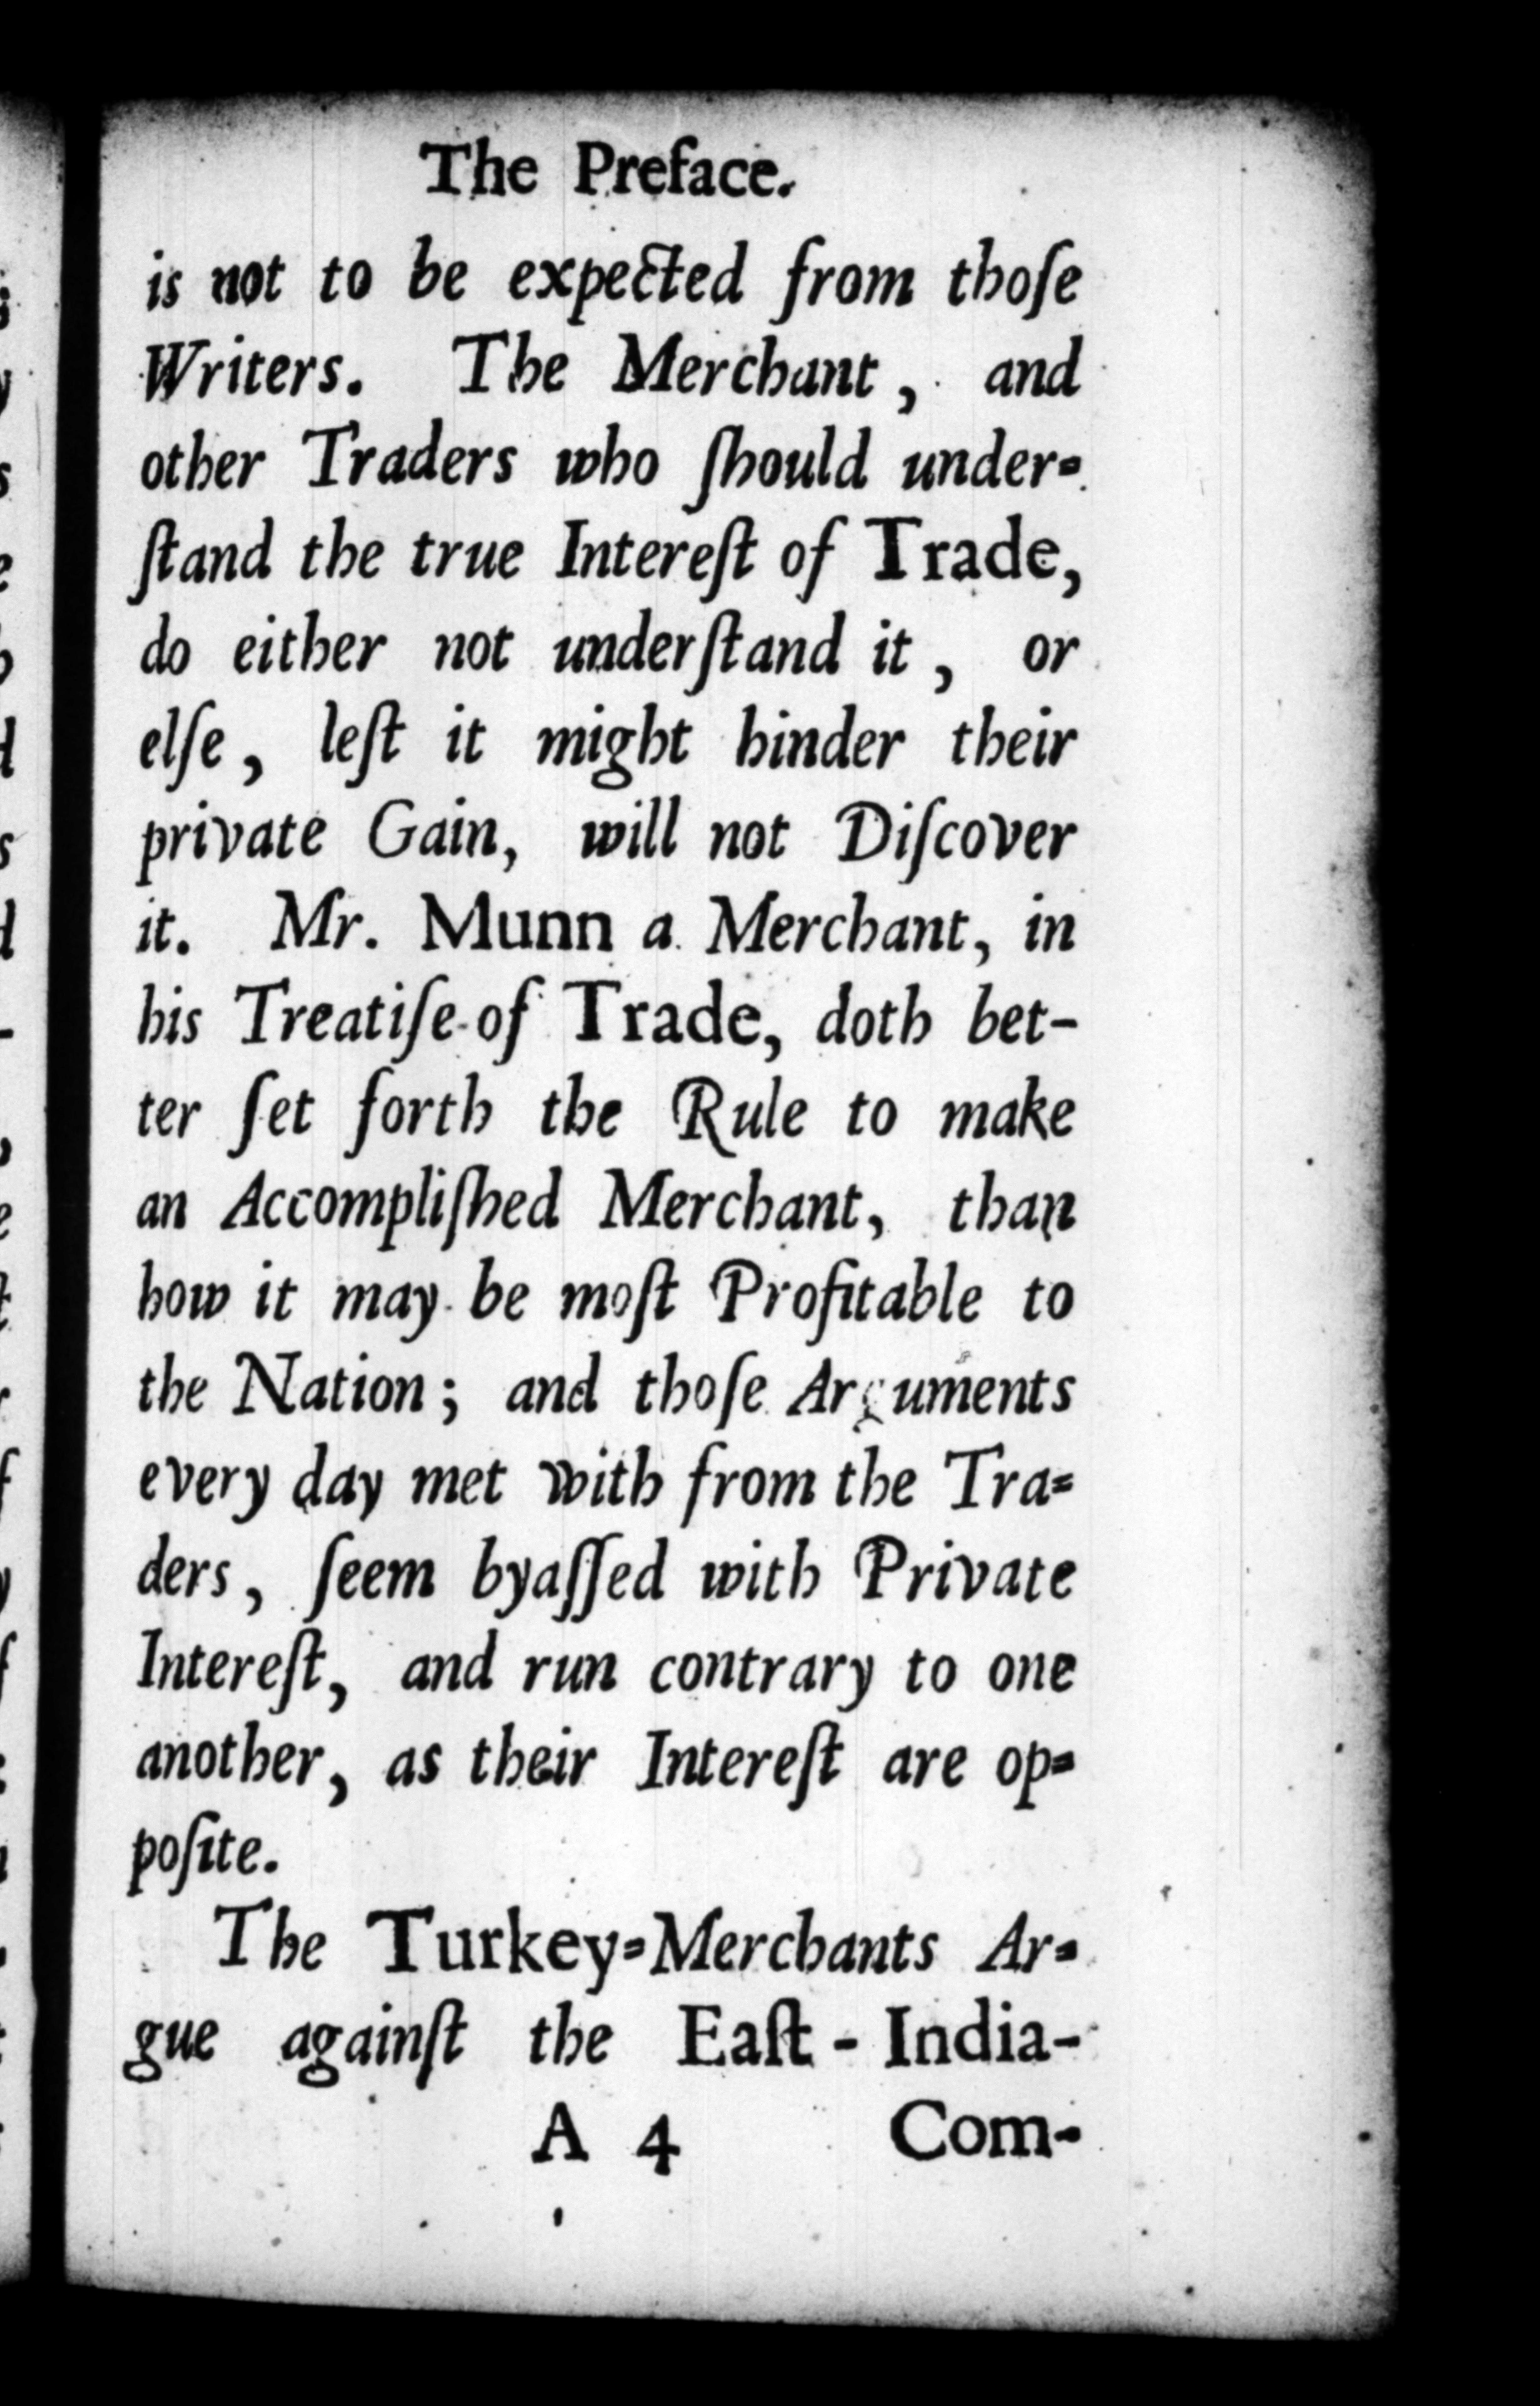 The Preface.
is not to be expected from thoſe
Writers. The Merchant, and
other Traders who ſhould under-
ſtand the true Intereſt of Trade,
do either not underſtand it, or
elſe, leſt it might hinder their
private Gain, will not Diſcover
it. Mr. Munn a Merchant, in
his Treatiſe of Trade, doth bet-
ter ſet forth the Rule to make
an Accompliſhed Merchant, than
how it may be moſt Profitable to
the Nation; and thoſe Arguments
every day met with from the Tra-
ders, ſeem byaſſed with Private
Intereſt, and run contrary to one
another, as their Intereſt are op-
poſite.
The Turkey-Merchants Ar-
gue againſt the Eaſt-India-
A 4 Com-